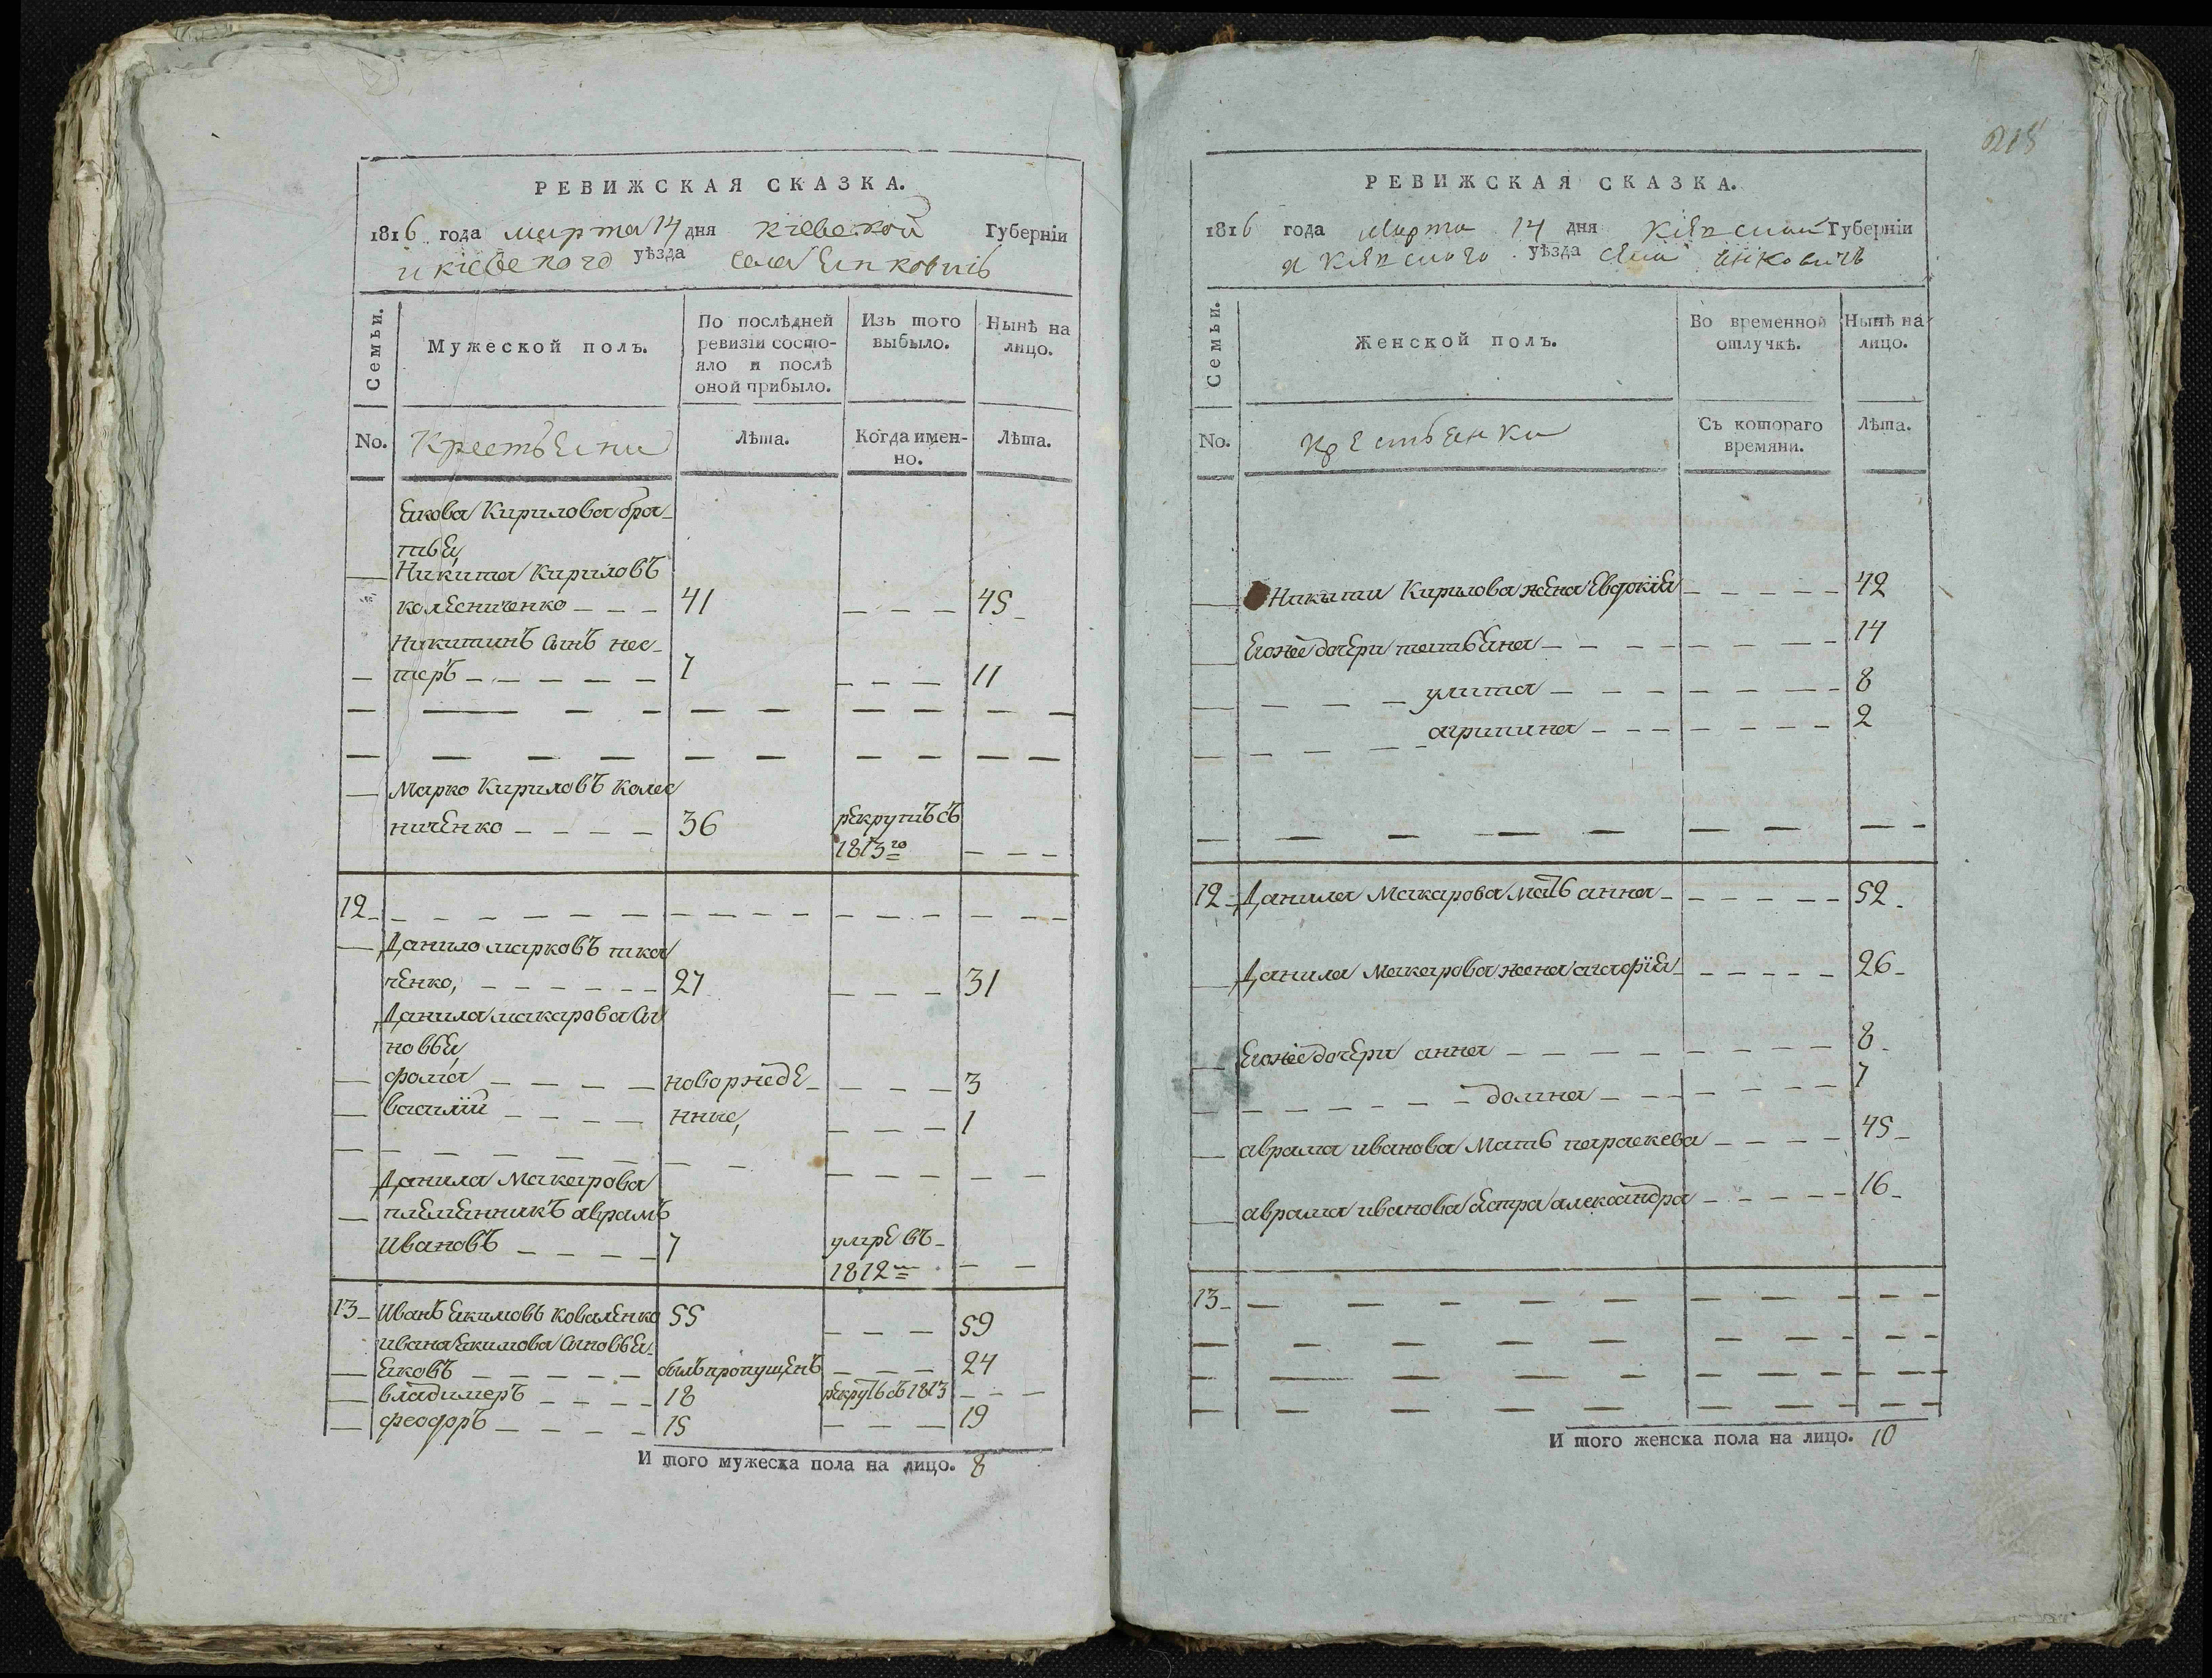 РЕВИЖСКАЯ СКАЗКА.
1816 года марта 14 дня киевской Губерніи
и киевскаго уѣзда села Янковичь
Семьи.
Мужеской полъ.
По послѣдней
ревизіи состо-
яло и послѣ
оной прибыло.
Изъ того
выбыло.
Нынѣ на
лицо.
No.
Крестьяни
Лѣта.
Когда имен-
но.
Лѣта.
Якова Кирилова бра-
тья,
Никита Кириловъ
колесниченко 41 45
Никитинъ сынъ нес-
теръ 7 11
Марко Кириловъ колес
ниченко 36 рекрутъ съ
1813го
12
Данило марковъ тка
ченко, 27 31
Данила макарова сы
новья,
фома новорожде 3
василій нные, 1
Данила Макарова
племянникъ аврамъ
Ивановъ 7 умре въ
1812м
13 Иванъ якимовъ коваленко 55 59
ивана якимова сыновья
яковъ былъ пропущенъ 24
владимеръ 18 рекрутъ съ 1813
феодоръ 15 19
И того мужеска пола на лицо. 8
215
РЕВИЖСКАЯ СКАЗКА.
1816 года Марта 14 дня киевской Губерніи
и киевского уѣзда села янковичъ
Семьи.
Женской полъ.
Во временной
отлучкѣ.
Нынѣ на
лицо.
No.
крестьянки
Съ котораго
времяни.
Лѣта.
Никиты Кирилова жена Евдокія 42
Егоже дочери татьяна 14
улита 8
агрипина 2
12 Данила Макарова мать анна 52
Данила Макарова жена агафія 26
Егоже дочери анна 8
домна 7
аврама иванова Мать параскева 45
аврама иванова сестра александра 16
13
И того женска пола на лицо. 10